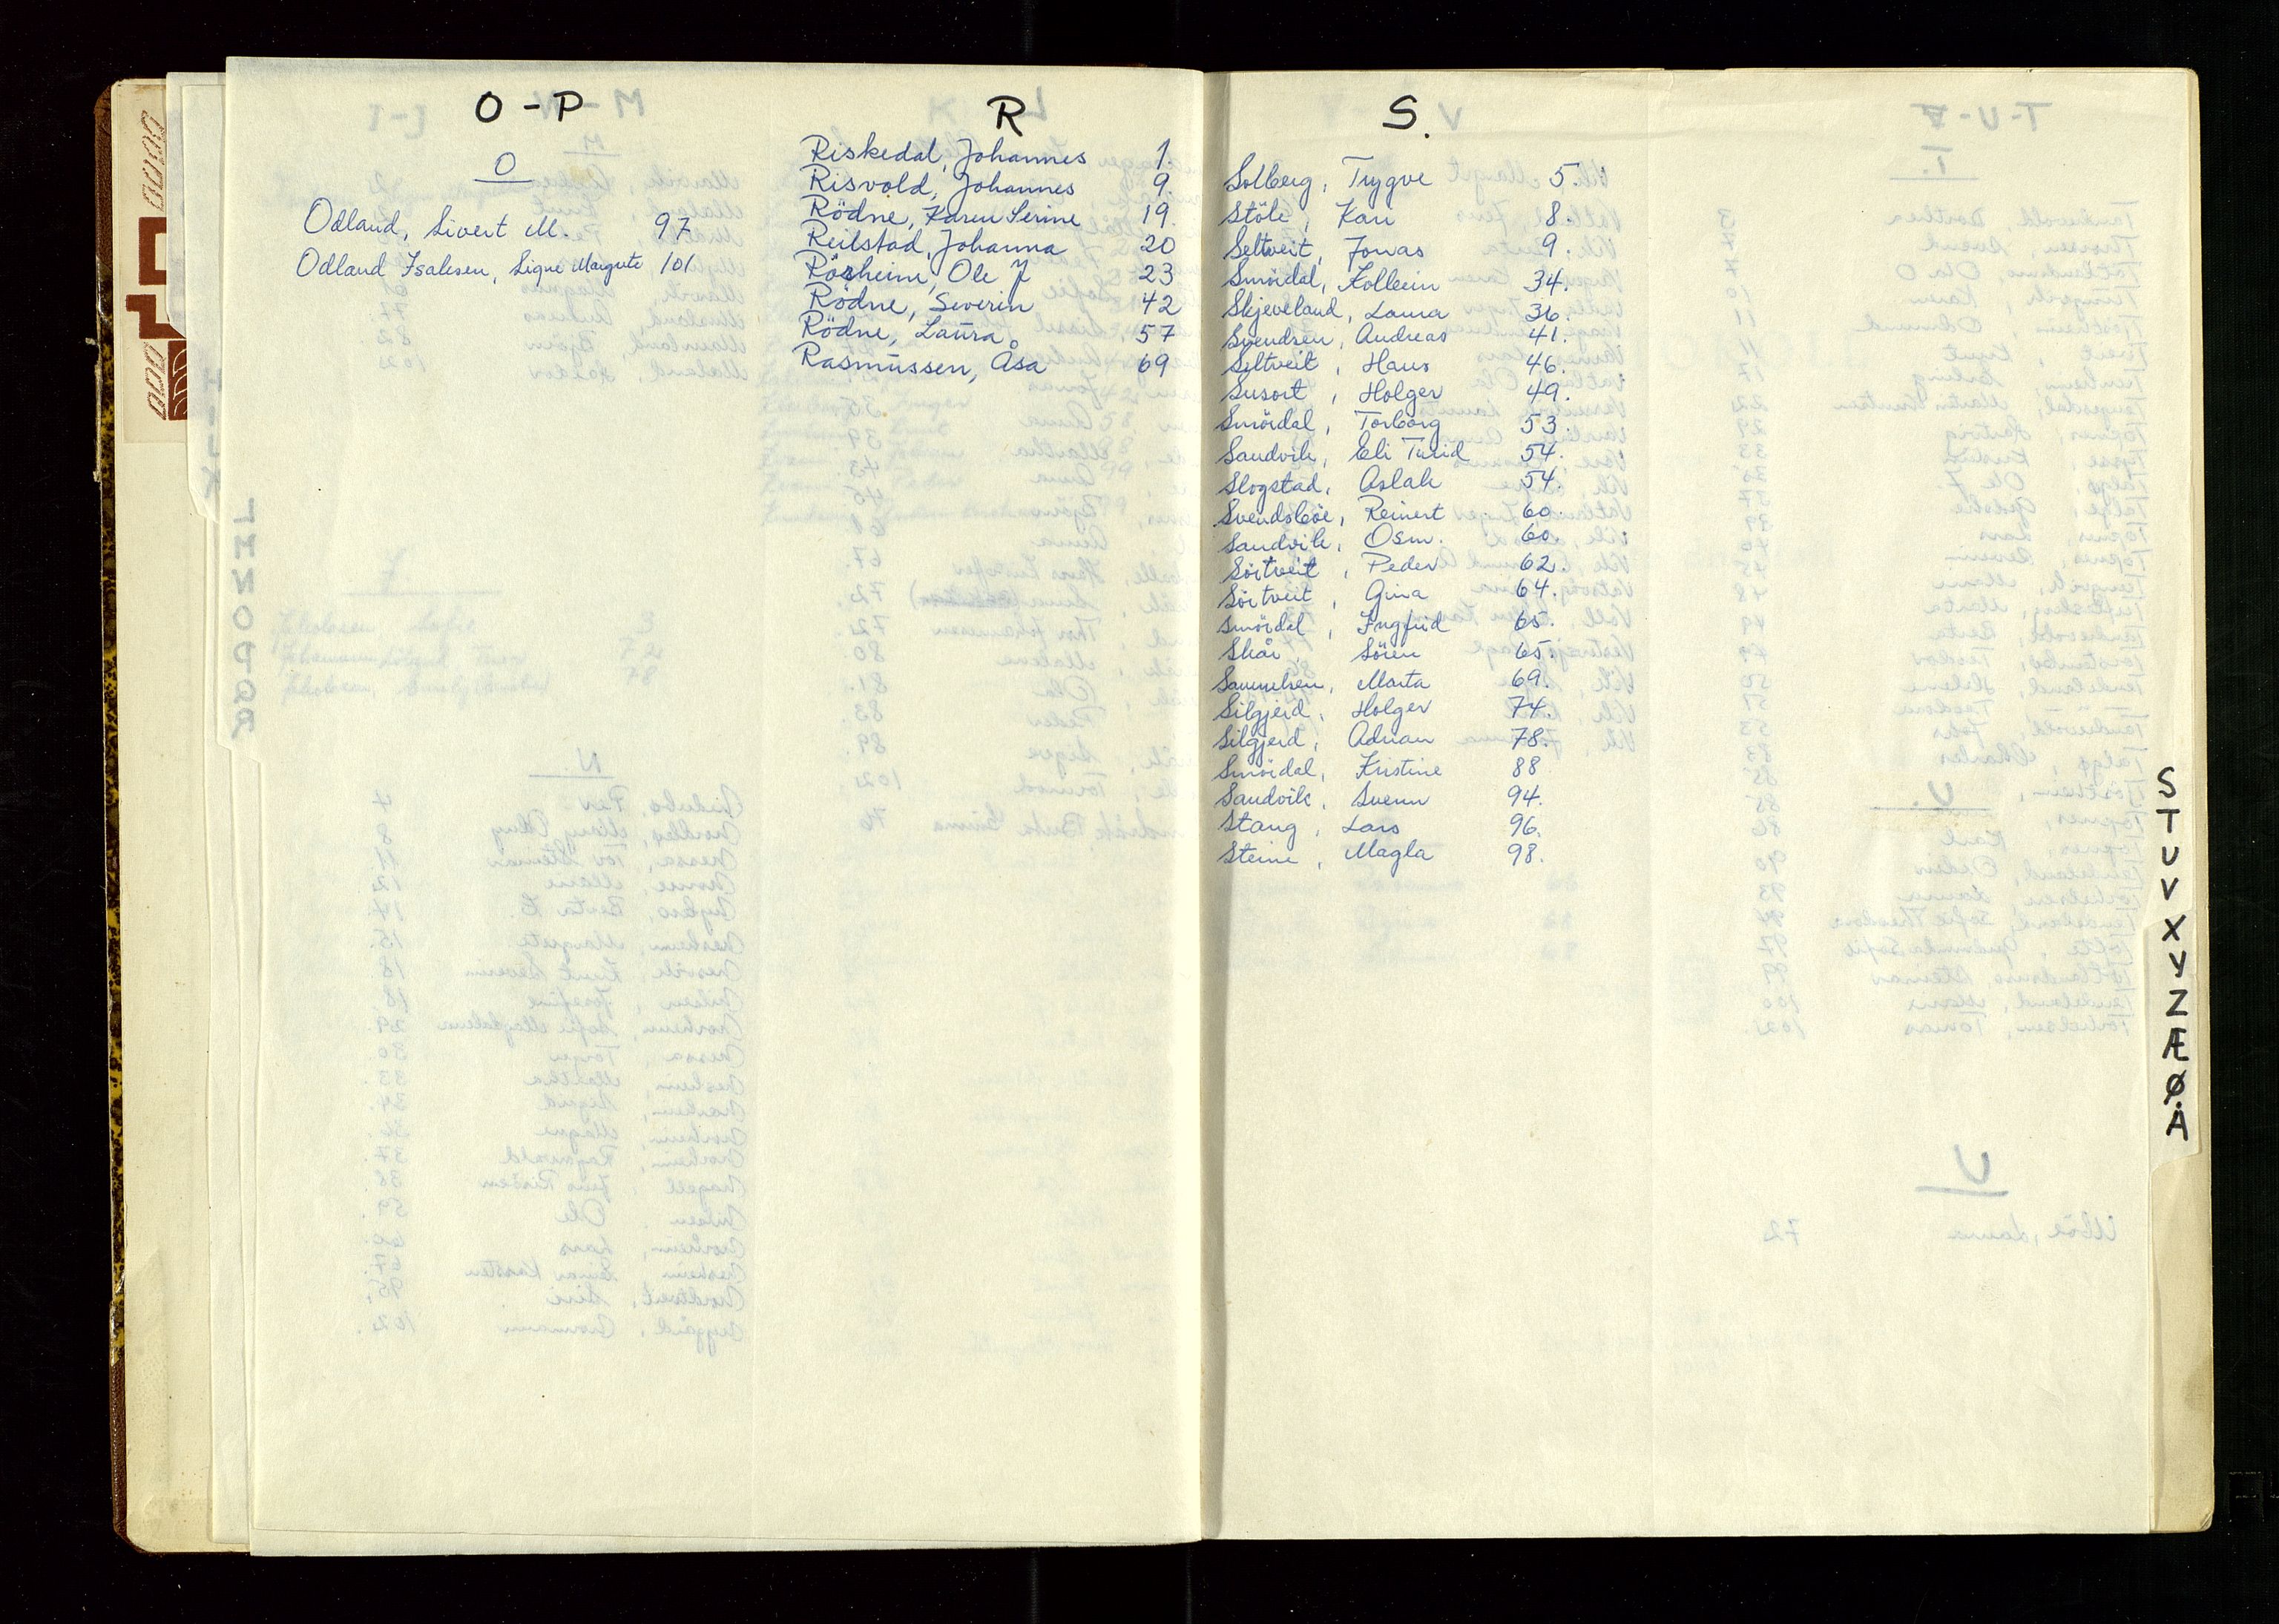 O - P
O
Odland, Sivert M. 97
Odland Isaksen, Signe Margrete 101
R
Riskedal, Johannes 1.
Risvold, Johannes 9.
Rödne, Karen Serine 19.
Reilstad, Johanna 20
Rösheim, Ole J 23
Rödne, Severin 42
Rödne, Laura 57
Rasmussen, Åsa 69
S.
Solberg, Trygve 5.
Stöle, Kari 8.
Seltveit, Jonas 9.
Smördal, Kolbein 34.
Skjeveland, Laura 36.
Svendsen, Andreas 41.
Seltveit, Hans 46.
Susort, Holger 49.
Smördal, Torborg 53.
Sandvik, Eli Turid 54.
Slogstad, Aslak 54.
Svendsböe, Reinert 60.
Sandvik, Osm. 60.
Sörtveit, Peder 62.
Sörtveit, Gina 64.
Smördal, Ingfrid 65.
Skår, Sören 65.
Samuelsen, Marta 69.
Silgjerd, Holger 74.
Silgjerd, Adrian 78.
Smördal, Kristine 88
Sandvik, Svenn 94.
Stang, Lars 96.
Steine, Magla 98.
S
T
U
V
X
Y
Z
Æ
Ø
Å